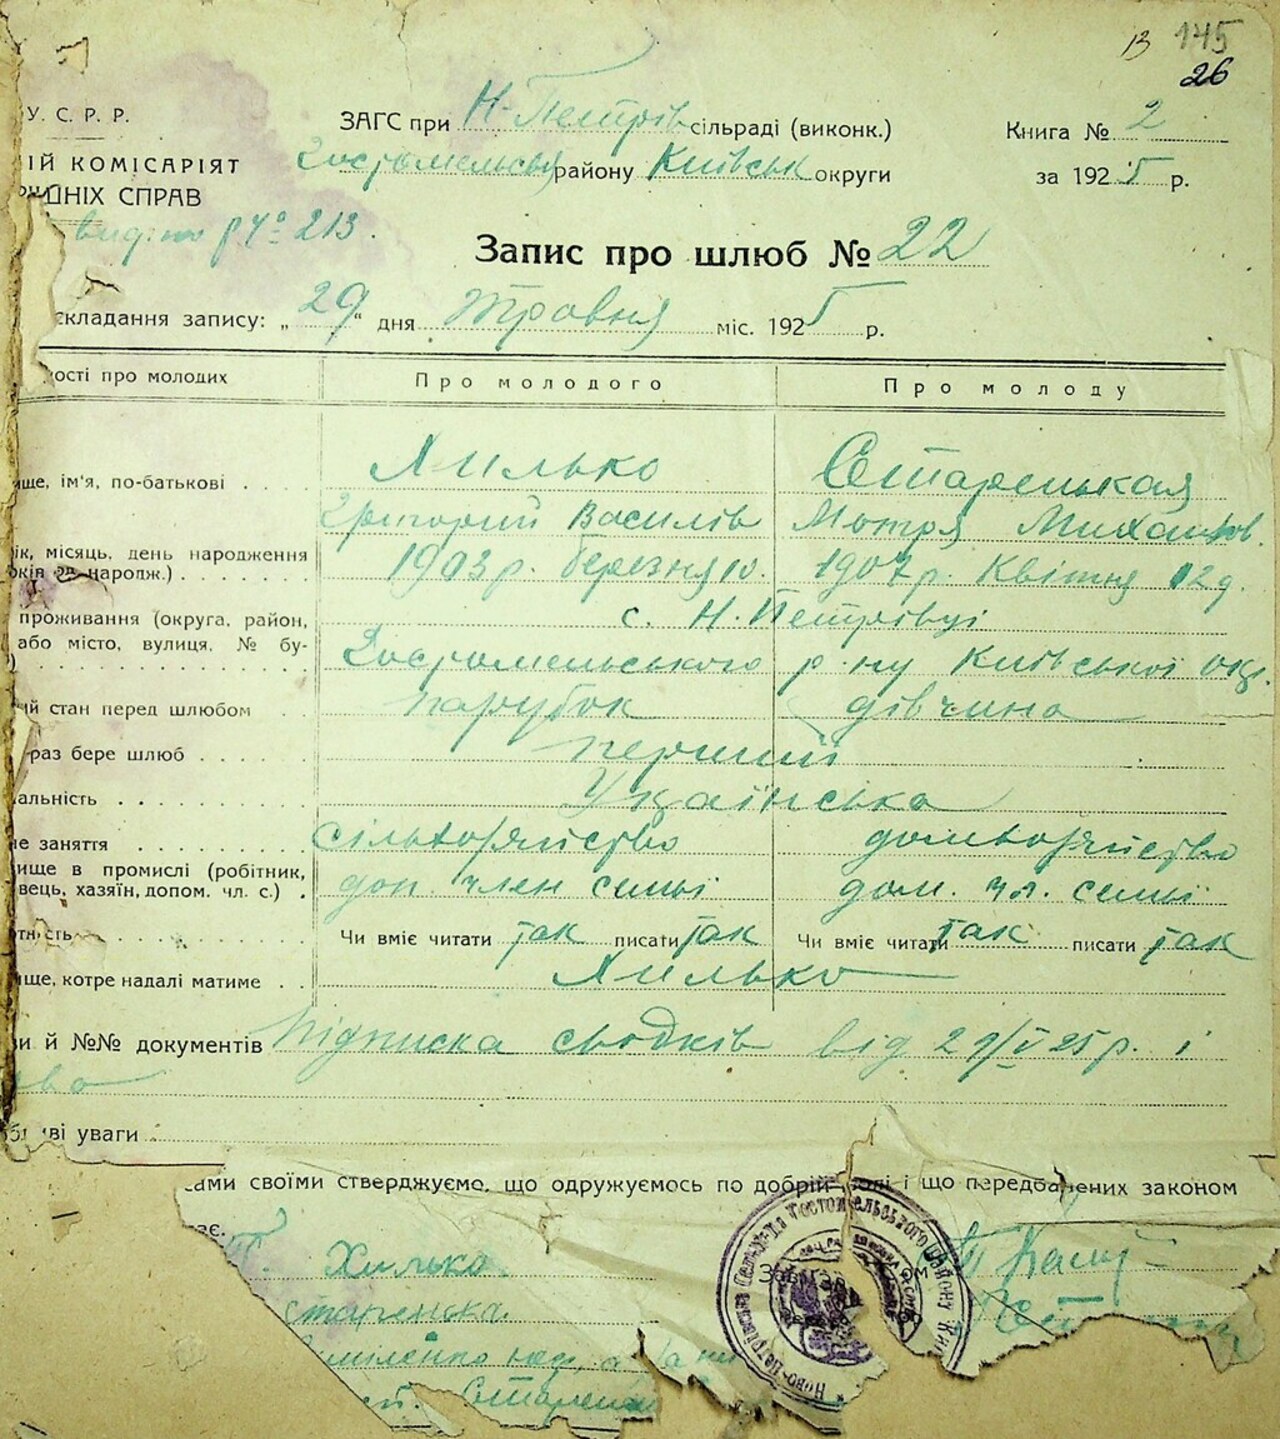 13 145
26
У. С. Р. Р.
ІЙ КОМІСАРІЯТ
ДНІХ СПРАВ
видано № 213.
ЗАГС при Н-Петрів сільраді (виконк.)
Гостомельськ району Київськ округи
Книга № 2
за 1925 р.
Запис про шлюб № 22
складання запису: „29“ дня травня міс. 1925 р.
ості про молодих Про молодого Про молоду
ище, ім'я, по-батькові . . . Хилько Старенькая
Григорий Василів Мотря Михайлов.
ік, місяць, день народження
оків народж.) 1903 р. березня 10. 1907 р. Квітня 12 д.
проживання (округа, район, с. Н. Петрівці
або місто, вулиця, № бу-
Гостомельського р-ну Київської окр.
ий стан перед шлюбом . . парубок дівчина
раз бере шлюб перший
альність Українська
не заняття сільхозяйство домхозяйство
ище в промислі (робітник,
вець, хазяїн, допом. чл. с.) . доп. член семьї дом. чл. семьї
тність Чи вміє читати так писати так Чи вміє читати так писати так
ище, котре надалі матиме . . Хилько
ви й №№ документів Підписка від 29/V 25 р. і
ві уваги
сами своїми стверджуємо, що одружуємось по добрій волі і що передбачених законом
ає.
Хилько
Старенька